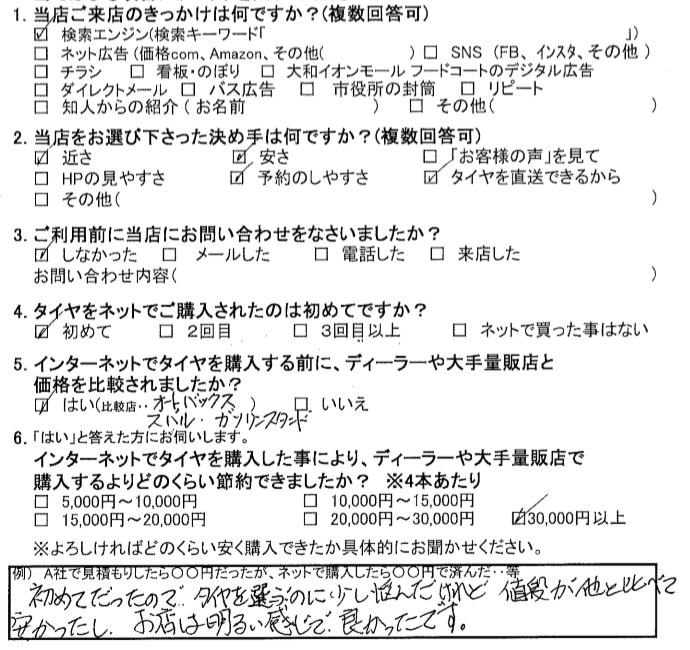 1. 当店ご来店のきっかけは何ですか？(複数回答可)
☑ 検索エンジン(検索キーワード「 」)
□ ネット広告(価格com、Amazon、その他( ) □ SNS (FB、インスタ、その他 )
□ チラシ □ 看板・のぼり □ 大和イオンモール フードコートのデジタル広告
□ ダイレクトメール □ バス広告 □ 市役所の封筒 □ リピート
□ 知人からの紹介 ( お名前 ) □ その他( )
2. 当店をお選び下さった決め手は何ですか？(複数回答可)
☑ 近さ ☑ 安さ □ 「お客様の声」を見て
□ HPの見やすさ ☑ 予約のしやすさ ☑ タイヤを直送できるから
□ その他( )
3. ご利用前に当店にお問い合わせをなさいましたか？
☑ しなかった □ メールした □ 電話した □ 来店した
お問い合わせ内容( )
4. タイヤをネットでご購入されたのは初めてですか？
☑ 初めて □ 2回目 □ 3回目以上 □ ネットで買った事はない
5. インターネットでタイヤを購入する前に、ディーラーや大手量販店と
価格を比較されましたか？
☑ はい(比較店‥オートバックス ) □ いいえ
スバル・ガソリンスタンド
6. 「はい」と答えた方にお伺いします。
インターネットでタイヤを購入した事により、ディーラーや大手量販店で
購入するよりどのくらい節約できましたか？ ※4本あたり
□ 5,000円～10,000円 □ 10,000円～15,000円
□ 15,000円～20,000円 □ 20,000円～30,000円 ☑30,000円以上
※よろしければどのくらい安く購入できたか具体的にお聞かせください。
例) A社で見積もりしたら〇〇円だったが、ネットで購入したら〇〇円で済んだ‥等
初めてだったので、タイヤを選ぶのに少し悩んだけれど 値段が他と比べて
安かったし、お店は明るい感じで良かったです。